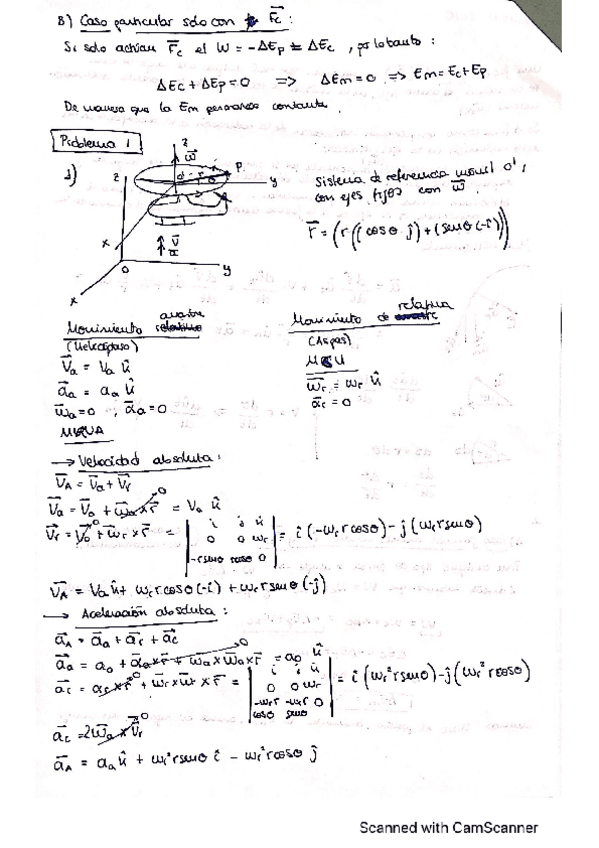 8) Caso particular solo con F⃗c :
Si solo actúan F⃗c el W = -ΔEp = ΔEc , por lo tanto :
ΔEc + ΔEp = 0 => ΔEm = 0 => Em = Ec + Ep
De manera que la Em permanece constante.
Problema 1
1)
z
z
ω⃗
P.
O'
r
θ
y
x
V⃗
a⃗
O
y
x
Sistema de referencia móvil O',
con ejes fijos con ω⃗.
r⃗ = (r((cosθ j) + (senθ(-i))))
Movimiento arrastre
(Helicóptero)
V⃗a = Va û
a⃗a = aa û
ω⃗a = 0 , α⃗a = 0
MRUA
Movimiento de relativa
(Aspas)
MCU
ω⃗r = ωr û
α⃗r = 0
→ Velocidad absoluta :
V⃗A = V⃗a + V⃗r
V⃗a = V⃗o + ω⃗a x r⃗ 0 = Va û
V⃗r = V⃗o 0 + ω⃗r x r⃗ = | i j û 0 0 ωr -rsenθ rcosθ 0 | = î(-ωr r cosθ) - j(ωr r senθ)
V⃗A = Va û + ωr r cosθ (-î) + ωr r senθ (-ĵ)
→ Aceleración absoluta :
a⃗A = a⃗a + a⃗r + a⃗c
a⃗a = ao + α⃗a x r⃗ + ω⃗a x ω⃗a x r⃗ 0 = ao û
a⃗r = α⃗r x r⃗ 0 + ω⃗r x ω⃗r x r⃗ = | i j û 0 0 ωr -ωr r cosθ -ωr r senθ 0 | = î(ωr² r senθ) - j(ωr² r cosθ)
a⃗c = 2ω⃗a x V⃗r 0
a⃗A = aa û + ωr² r senθ î - ωr² r cosθ ĵ
Scanned with CamScanner